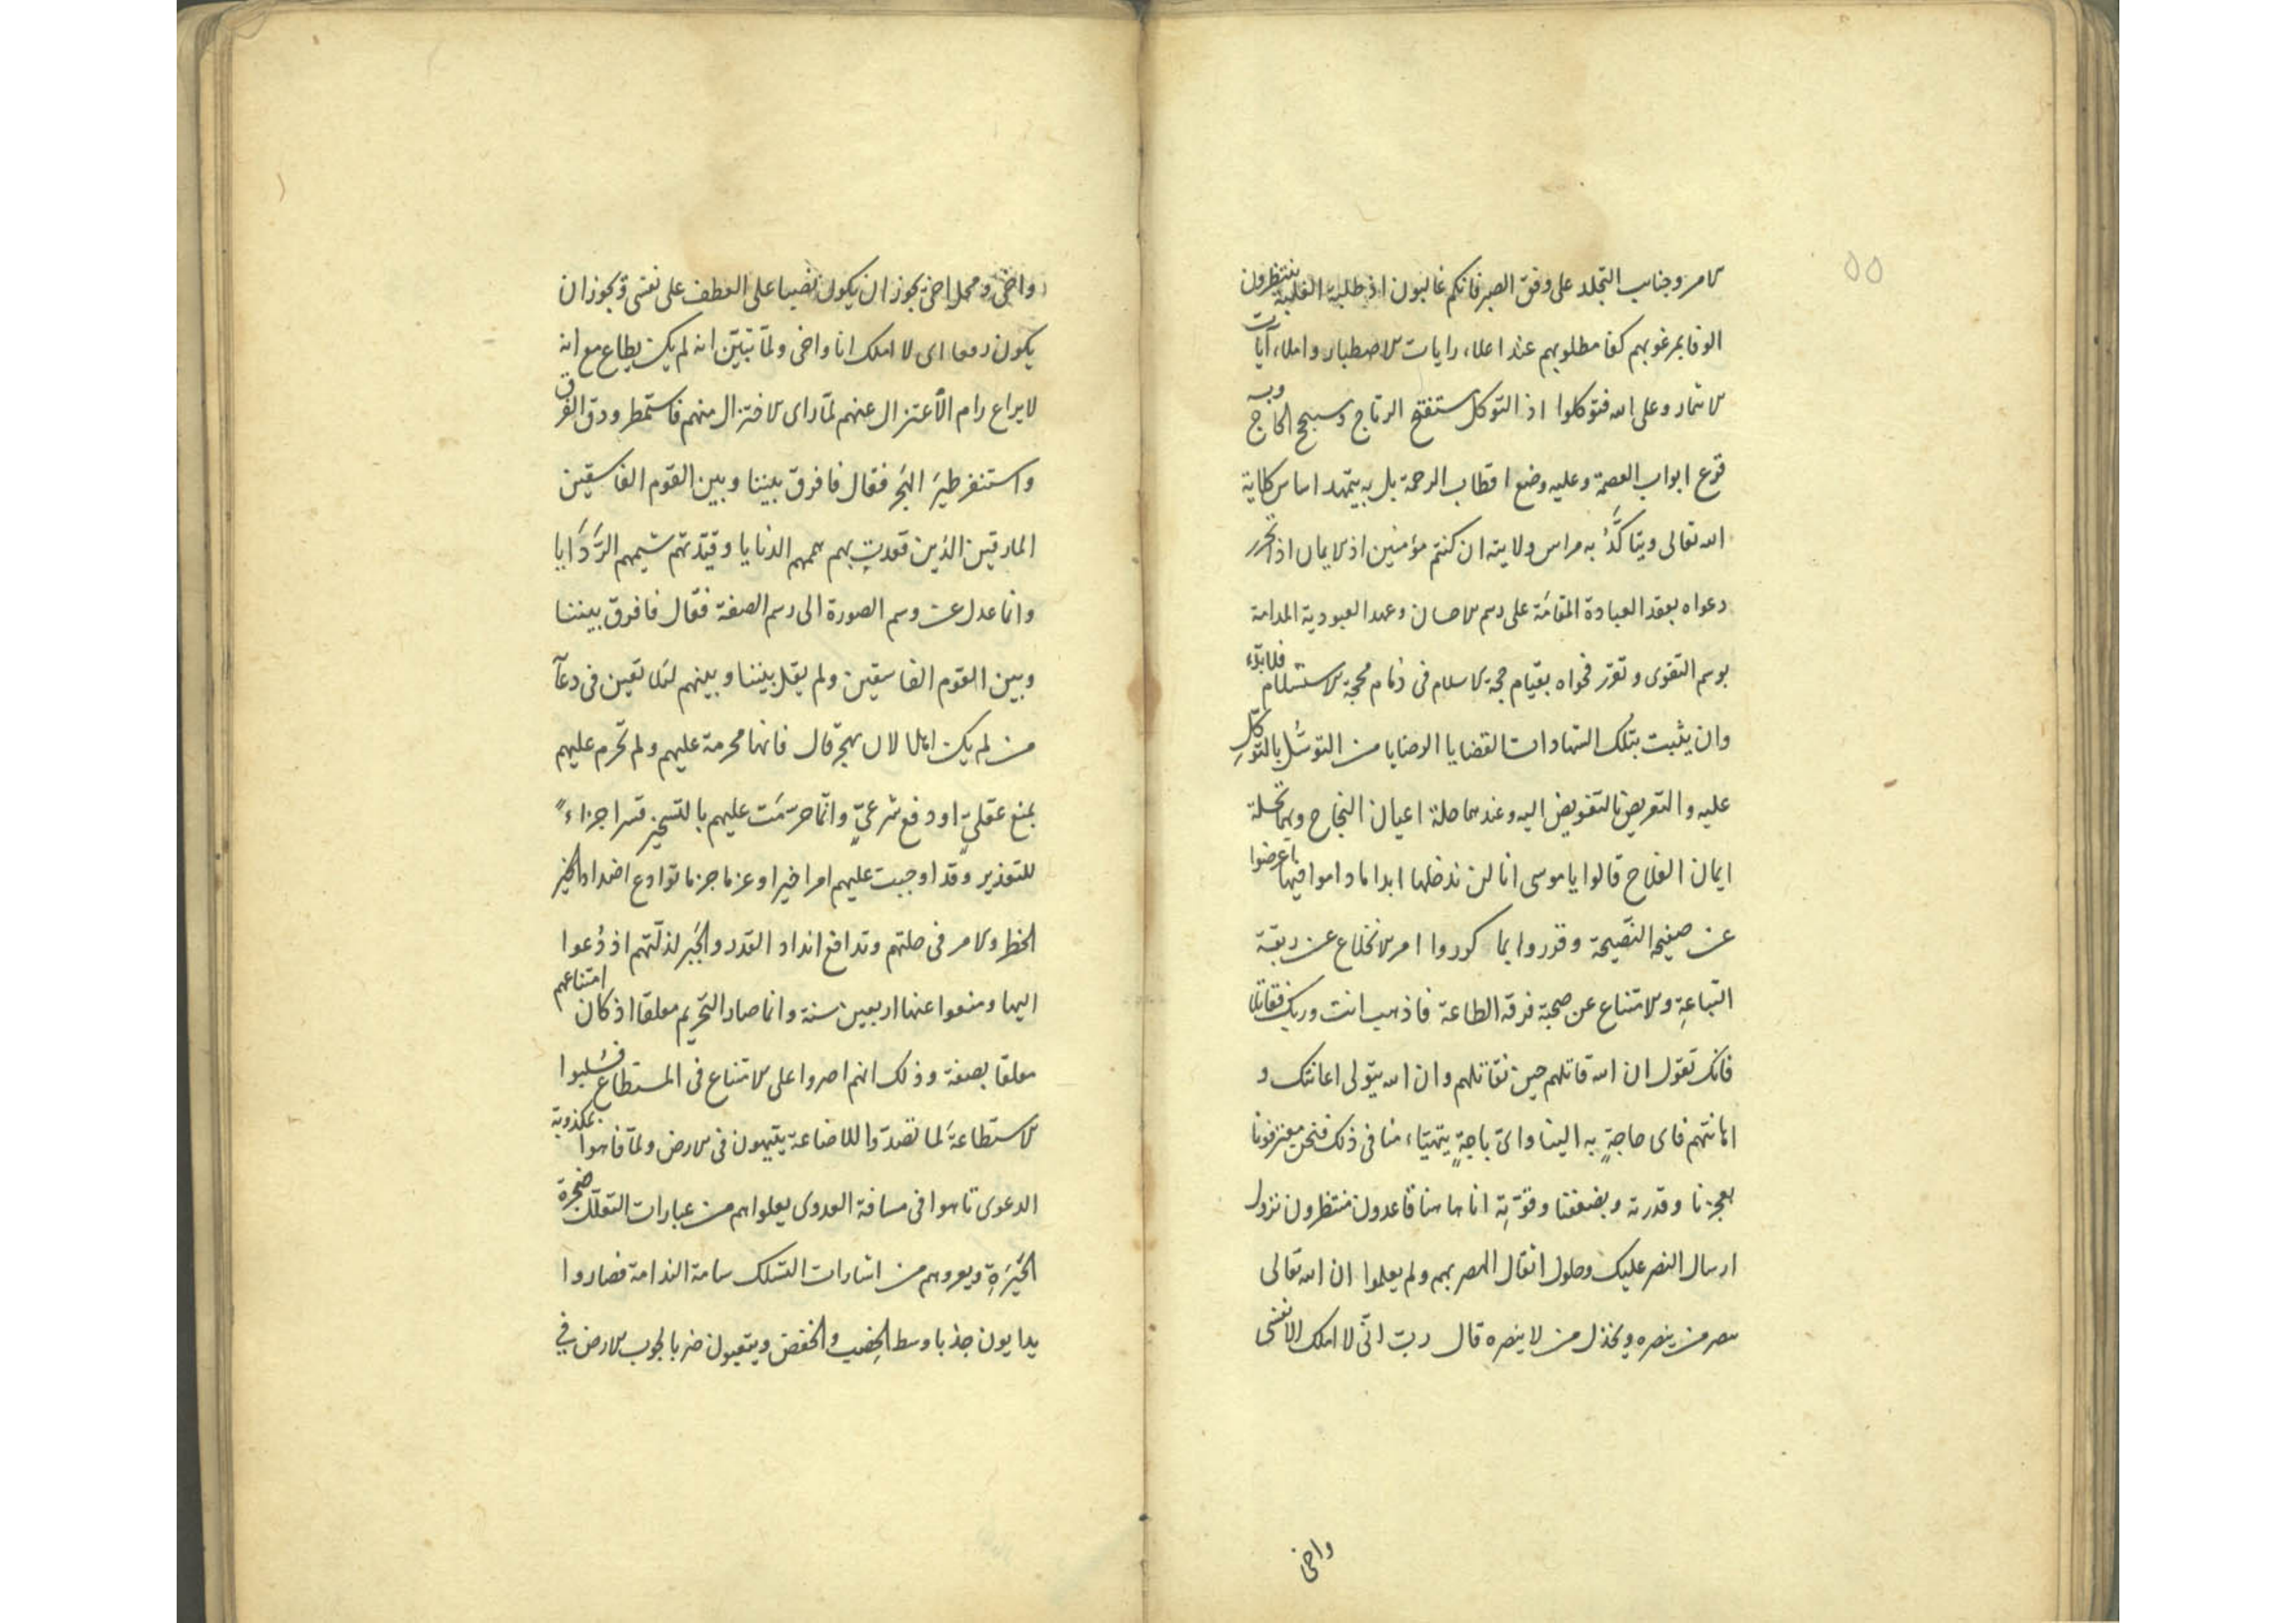 ٥٥
الامر وجناب التجلد على وفق الصبر فانكم غالبون اذ طلبة الغلبة ينتظرون
الوفا بمرغوبهم كفا مطلوبهم عند اعلاء رايات الاصطبار واملاء آيات
الاثمار وعلى الله فتوكلوا اذ التوكل ستفتح الرتاج وبه
قرع ابواب العصمة وعليه وضع اقطاب الرحمة بل به يتمهد اساس كلاية
الله تعالى ويتاكد به مراس ولايته ان كنتم مؤمنين اذ الايمان اذا تحرر
دعواه بعقد العبادة المقامة على رسم الاحسان وعهد العبودية المدامة
بوسم التقوى وتقرر فحواه بقيام حجة الاسلام فى ذمام محجة الاستسلام فلا بدّ
وان يثبت بتلك الشهادات القضايا الوصايا من التوسّل بالتوكّل
عليه والتعريض بالتفويض اليه وعندهما صلة اعيان النجاح وبهما تحلة
ايمان الفلاح قالوا يا موسى انا لن ندخلها ابدا ما داموا فيها اعرضوا
عن صفيحة النصيحة وقرروا بما كوروا امر الانخلاع عن ربقة
التباعةِ والامتناع عن صحبة فرقه الطاعة فاذهب انت وربك فقاتلا
فانك تقول ان الله قاتلهم حين تقاتلهم وان الله يتولى اعانتك و
اهانتهم فاى حاجةٍ به الينا واىّ باجةٍ يتهيّاء منا فى ذلك فنحن معترفونا
بعجزنا وقدرته وبضعفنا وقوّتِه انا هاهنا قاعدون منتظرون نزول
ارسال النصر عليك وحلول اثقال الهصر بهم ولم يعلموا ان الله تعالى
ينصر من ينصره ويخذل من لا ينصره قال ربّ انّى لا املك الا نفسى
واخى
واخى ومحل اخى يجوز ان يكون نصبا على العطف على نفسى ويجوز ان
يكون رفعا اى لا املك انا واخى ولمّا تبيّن انه لم يك يطاع مع انه
لا يراع رام الأعتزال عنهم لمّا راى الاختزال منهم فاستمطر ودق الفرق
واستنفر طيرَ الهَجر فقال فافرق بيننا وبين القوم الفاسقين
المارقين الذين قعدت بهم هممهم الدنايا وقيّدتهم شيمهم الرَّدَايا
وانما عدل عن وسم الصورة الى رسم الصفة فقال فافرق بيننا
وبين القوم الفاسقين ولم يقل بيننا وبينهم لئلا تعين فى دعآ
من لم يك اهلا لان يهجر قال فانها محرمة عليهم ولم تحرم عليهم
بمنع عقليٍّ او دفع شرعيٍّ وانّما حرّمَت عليهم بالتسخير قسرا جزاءً
للتعذير وقد اوجبت عليهم امرا خيرا وعزما جزما توادع اضداد الخير
الحظر والامر فى حلتهم وتدافع انداد القدر والجَبر لذلّتهم اذ دُعوا
اليها ومنعوا عنها اربعين سنة وانما صار التحريم معلقا اذ كان امتناعهم
معلقا بصفة وذلك انهم اصروا على الامتناع فى المستطاع فسُلبوا
الاستطاعةَ لما تصدّوا للاضاعة يتيهون فى الارض ولمّا فاهوا بمكذوبة
الدعوى تاهوا فى مسافة العدوى يعلواهم من عبارات التعلّل ضجرة
الحَيرَةِ ويعروهم من اشارات التسلك سامة الندامة فصاروا
يدايون جذبا وسط الخصب والخفض ويتعبون ضربا لجوب الارض في